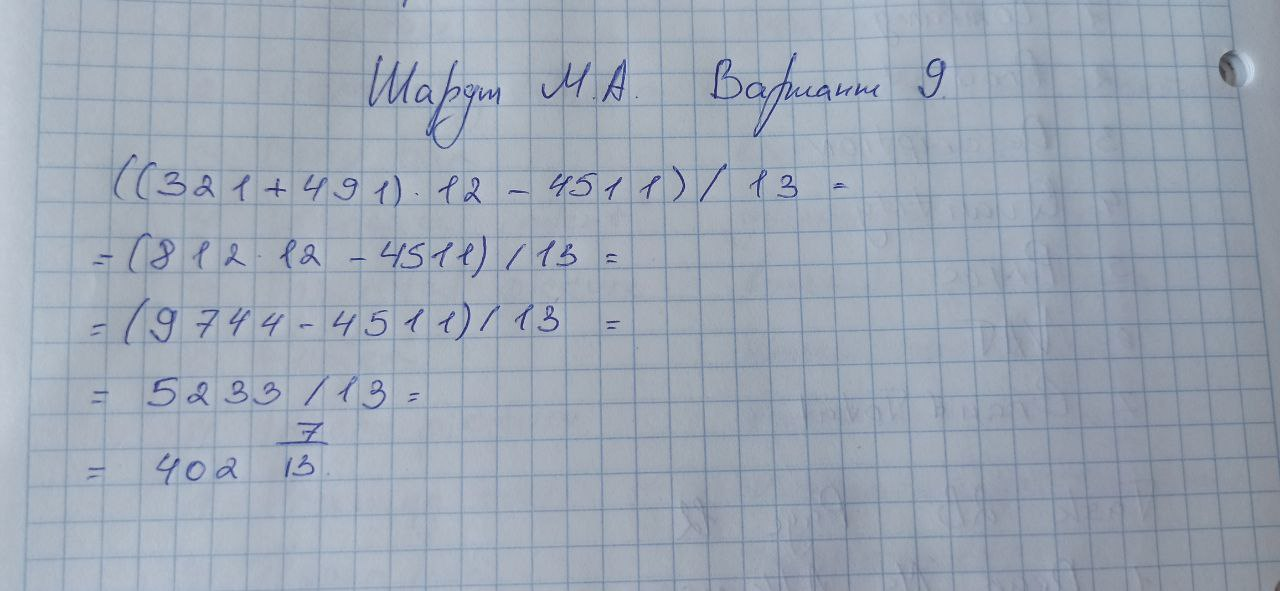 М.А. Вариант 9
((321+491)·12-4511)/13=
=(812·12-4511)/13=
=(9744-4511)/13=
=5233/13=
=402 7/13.